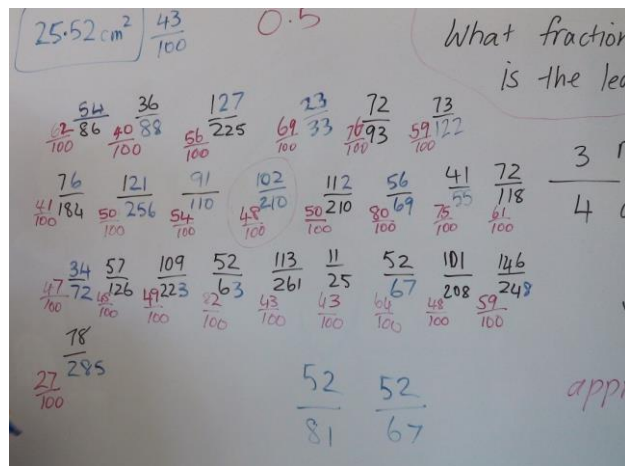 25.52 cm² 43/100 0.5 What fraction
is the lea
54/86 36/88 127/225 23/33 72/93 73/122
62/100 40/100 56/100 69/100 76/100 59/100
76/184 121/256 91/110 102/210 112/210 56/69 41/55 72/118 3/4
41/100 50/100 54/100 48/100 50/100 80/100 75/100 61/100
34/72 57/126 109/223 52/63 113/261 11/25 52/67 101/208 146/248
47/100 45/100 49/100 82/100 43/100 43/100 64/100 48/100 59/100
78/285
27/100
52/81 52/67 appr